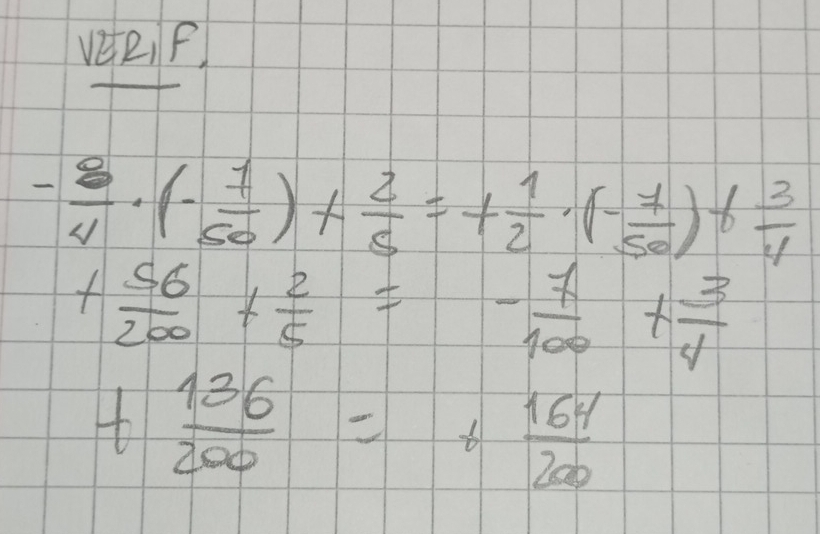 VERIF.
- 8/4 · (- 7/50) + 2/5 = + 1/2 · (- 7/50) + 3/4
+ 56/200 + 2/5 = - 7/100 + 3/4
+ 136/200 = + 164/200